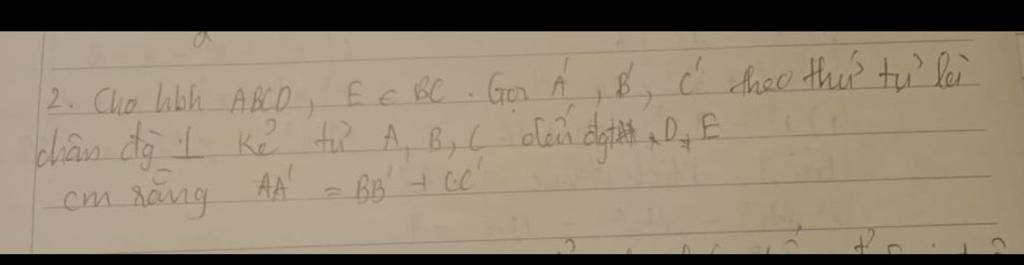 2. Cho hbh ABCD, E ∈ BC. Gọi A', B', C' theo thứ tự là
chân đg ⊥ kẻ từ A, B, C đến đgt D, E
cm rằng AA' = BB' + CC'